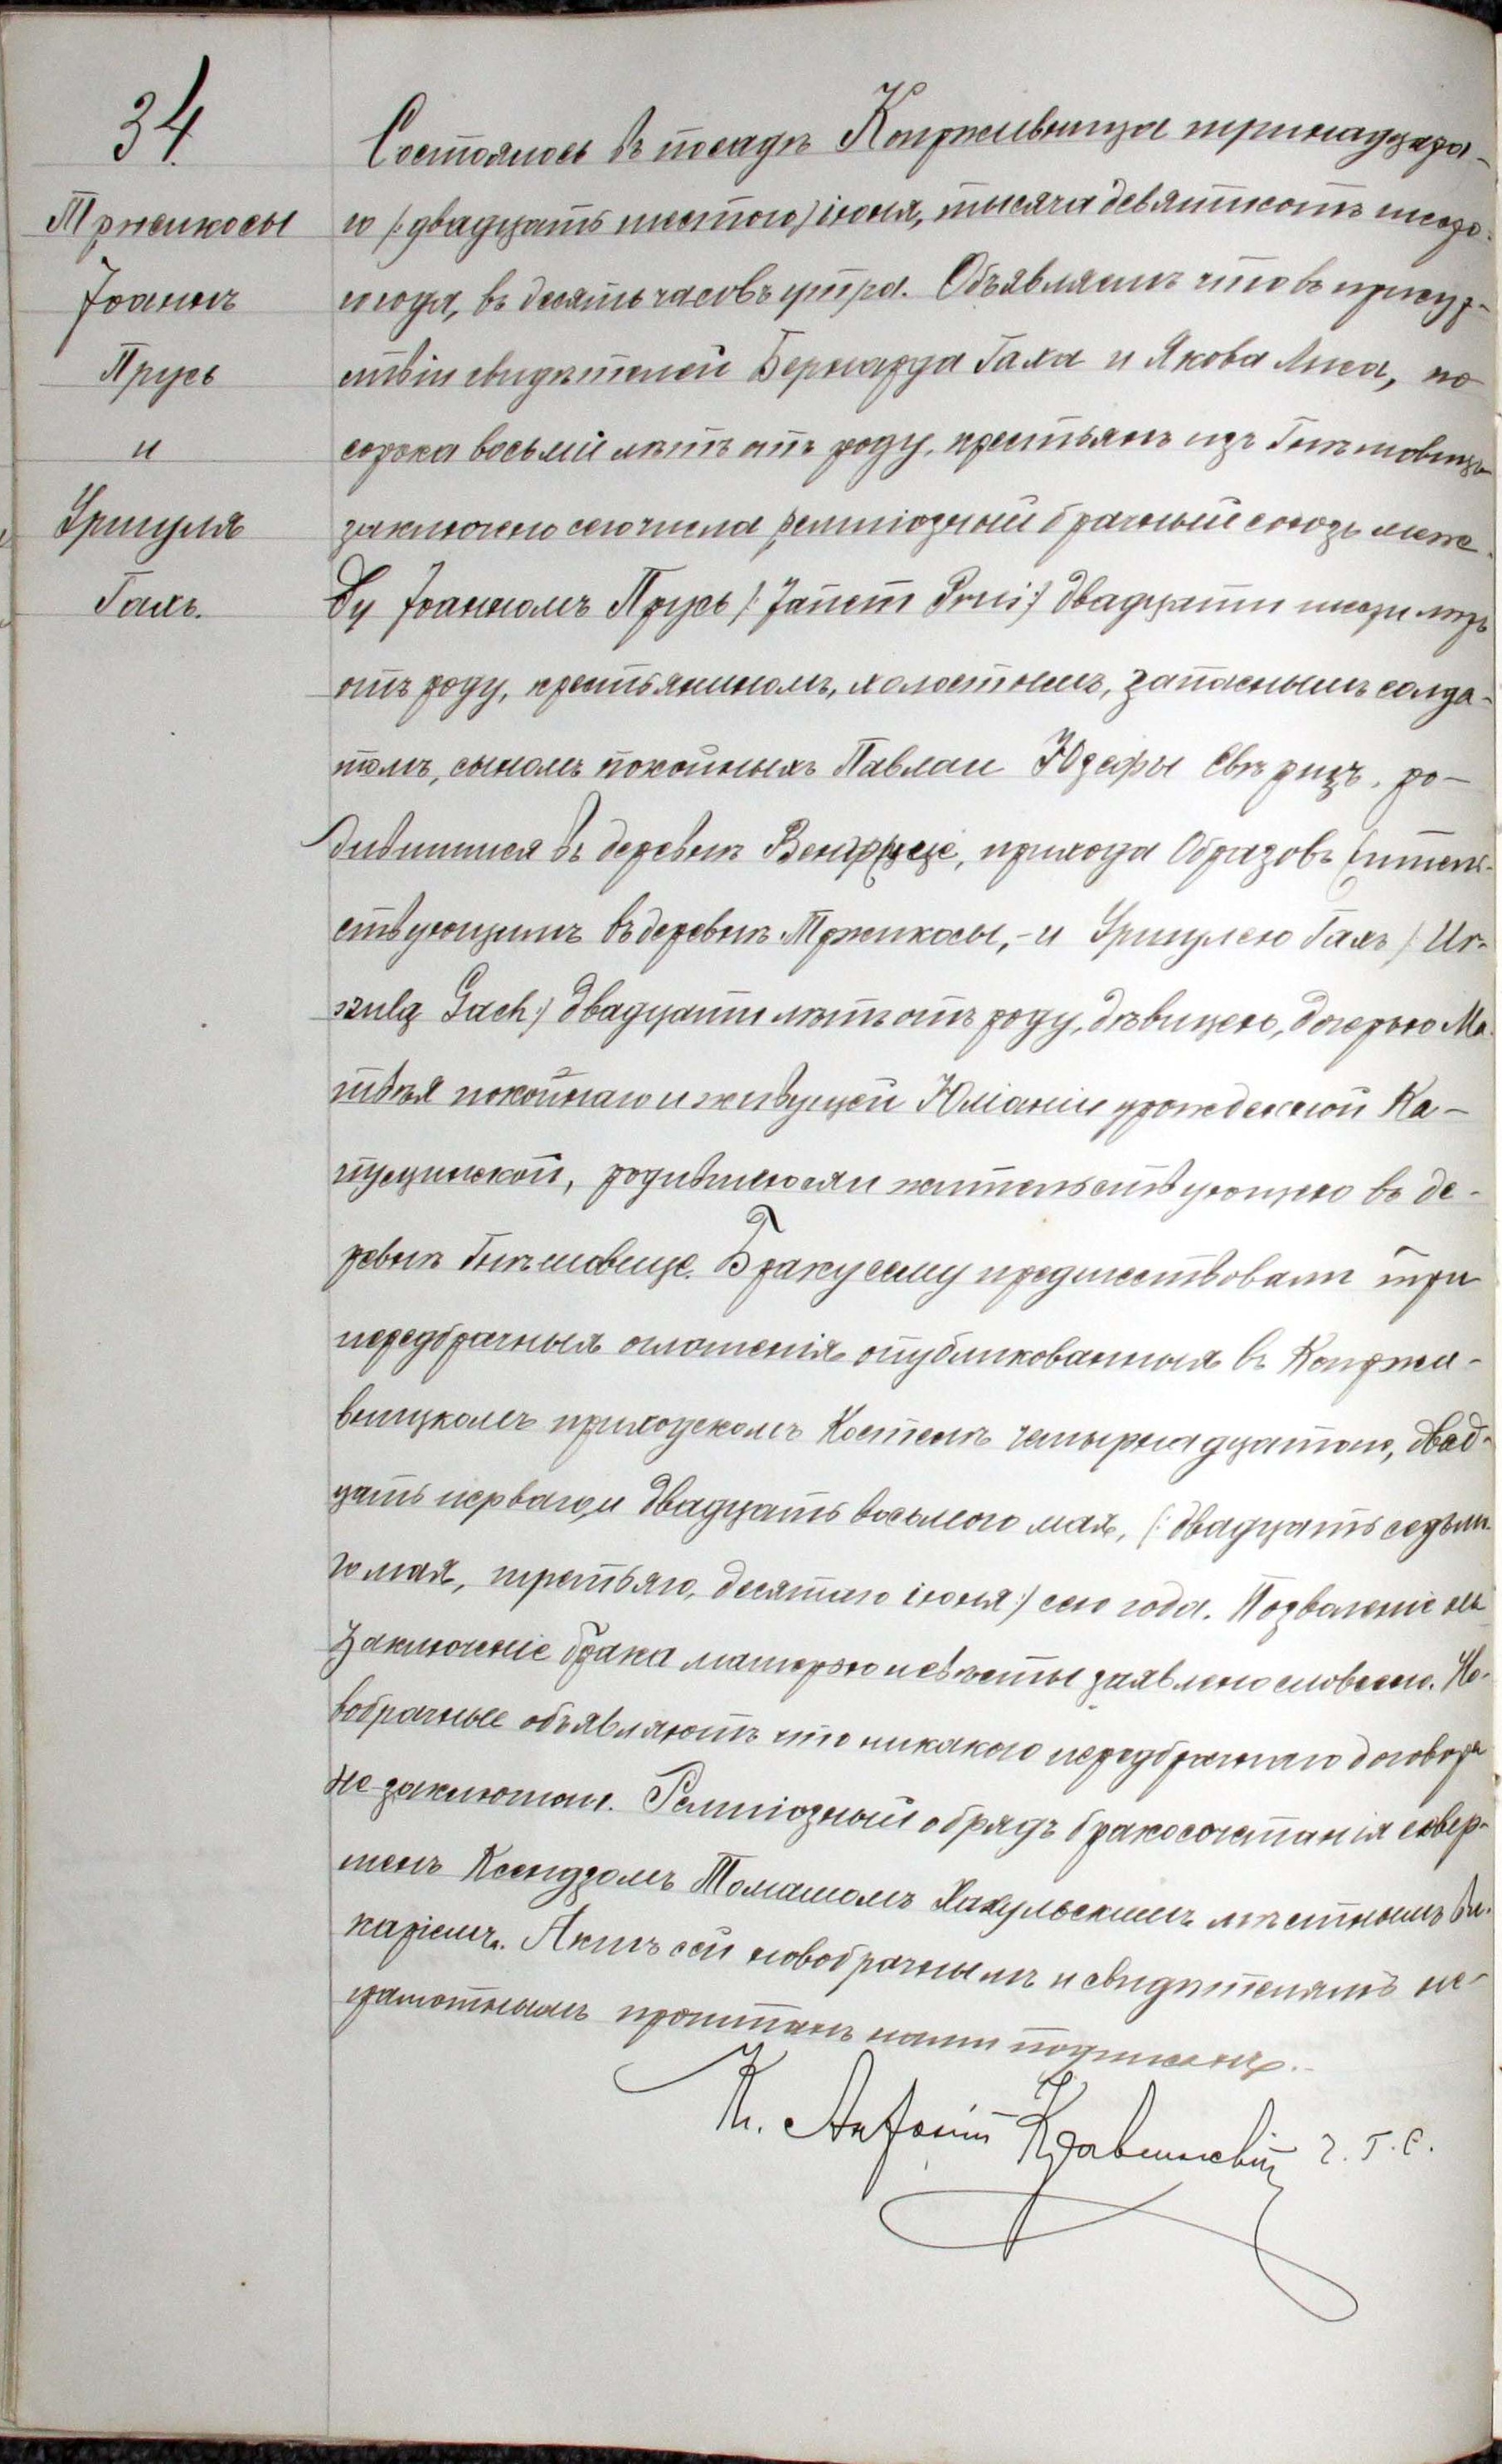 34.
Тржикосы
Іоаннъ
Прусь
и
Уршуля
Гахъ.
Состоялось въ посадѣ Копрживница тринадцата-
го /: двадцать шестого/ іюня, тысяча девятисотъ шесто-
го года, въ десять часовъ утра. Объявляемъ что въ присут-
ствіи свидѣтелей Бернарда Гаха и Якова Лиса, по
сорока восьми лѣтъ отъ роду, крестьянъ изъ Гнѣшовицъ
заключено сего числа религіозный брачный союзъ меж-
ду Іоанномъ Прусь /: Janem Prus :/ двадцати шести лѣтъ
отъ роду, крестьяниномъ, холостымъ, запаснымъ солда-
томъ, сыномъ покойныхъ Павла и Юзефы Свѣрщъ, ро-
дившимся въ деревнѣ Венгрще, прихода Образовъ житель-
ствующимъ въ деревнѣ Тржикосы, - и Уршулею Гахъ /: Ur-
szulą Gach :/ двадцати лѣтъ отъ роду, дѣвицею, дочерью Ма-
твѣя покойнаго и живущей Юліаніи урожденной Ка-
пусцинской, родившеюся и жительствующею въ де-
ревнѣ Гнѣшовице. Браку сему предшествовали три
передбрачныя оглашенія опубликованныя въ Копржи-
вницкомъ приходскомъ Костелѣ четырнадцатого, двад-
цать перваго, и двадцать восьмого мая, (: двадцать седьма-
го мая, третьяго, десятаго іюня :/ сего года. Позволеніе на
заключеніе брака матерью невѣсты заявлено словесно. Но-
вобрачные объявляютъ что никакого передбрачнаго договора
не заключали. Религіозный обрядъ бракосочетанія совер-
шенъ Ксендзомъ Томашомъ мѣстнымъ Ви-
каріемъ. Актъ сей новобрачнымъ и свидѣтелямъ не-
грамотнымъ прочитанъ нами подписанъ. -
К. Антоній ч. г. с.